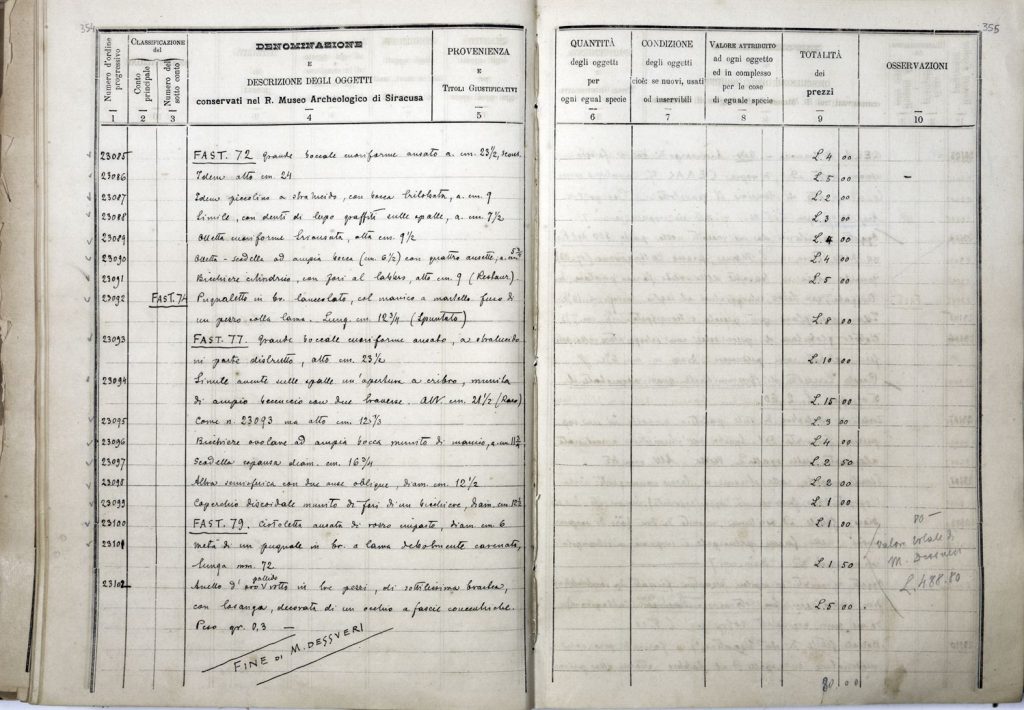 354
Numero d'ordine progressivo
CLASSIFICAZIONE del
Conto principale
Numero del sotto conto
DENOMINAZIONE
E
DESCRIZIONE DEGLI OGGETTI
conservati nel R. Museo Archeologico di Siracusa
PROVENIENZA
E
TITOLI GIUSTIFICATIVI
1 2 3 4 5
23085 FAST. 72 Grande boccale cuoriforme ansato a. cm. 23½,
23086 Idem alto cm. 24
23087 Idem piccolino a stralucido, con bocca trilobata, a. cm. 9
23088 Simile, con denti di lupo graffiti sulle spalle, a. cm. 7½
23089 Olletta cuoriforme biansata, alta cm. 9½
23090 Olletta-scodella ad ampia bocca (cm. 6½) con quattro ansette, a. cm.
23091 Bicchiere cilindrico, con fori al labbro, alto cm. 9 (Restaur.)
23092 FAST. 74 Pugnaletto in br. lanceolato, col manico a martello fuso di
un pezzo colla lama. Lung. cm. 12¾ (Spuntato)
23093 FAST. 77. Grande boccale cuoriforme ansato, a stralucido
in parte distrutto, alto cm. 23½
23094 Simile avente sulle spalle un'apertura a cribro, munita
di ampio beccuccio con due traverse. Alt. cm. 21½ (Raro)
23095 Come n. 23093 ma alto cm.
23096 Bicchiere ovolare ad ampia bocca munito di manico, a. cm.
23097 Scodella espansa diam. cm. 16¾
23098 Altra semisferica con due anse oblique, diam. cm. 12½
23099 Coperchio discoidale munito di fori di un bicchiere, diam. cm.
23100 FAST. 79. Ciotoletta ansata di rosso impasto, diam. cm. 6
23101 Metà di un pugnale in br. a lama debolmente carenata,
lunga mm. 72
23102 Anello d'oro pallido rotto in tre pezzi, di sottilissima bratta,
con losanga, decorata di un occhio a fascie concentriche.
Peso gr. 0,3 —
FINE DI M. DESSVERI
355
QUANTITÀ
degli oggetti
per
ogni egual specie
CONDIZIONE
degli oggetti
cioè: se nuovi, usati
od inservibili
VALORE ATTRIBUITO
ad ogni oggetto
ed in complesso
per le cose
di eguale specie
TOTALITÀ
dei
prezzi
OSSERVAZIONI
6 7 8 9 10
L. 4 00
L. 5 00 —
L. 2 00
L. 3 00
L. 4 00
L. 4 00
L. 5 00
L. 8 00
L. 10 00
L. 15 00
L. 3 00
L. 4 00
L. 2 50
L. 2 00
L. 1 00
L. 1 00
L. 1 50
L. 5 00
80 00
80—
Valore totale di
M. Dessueri
L. 488.80